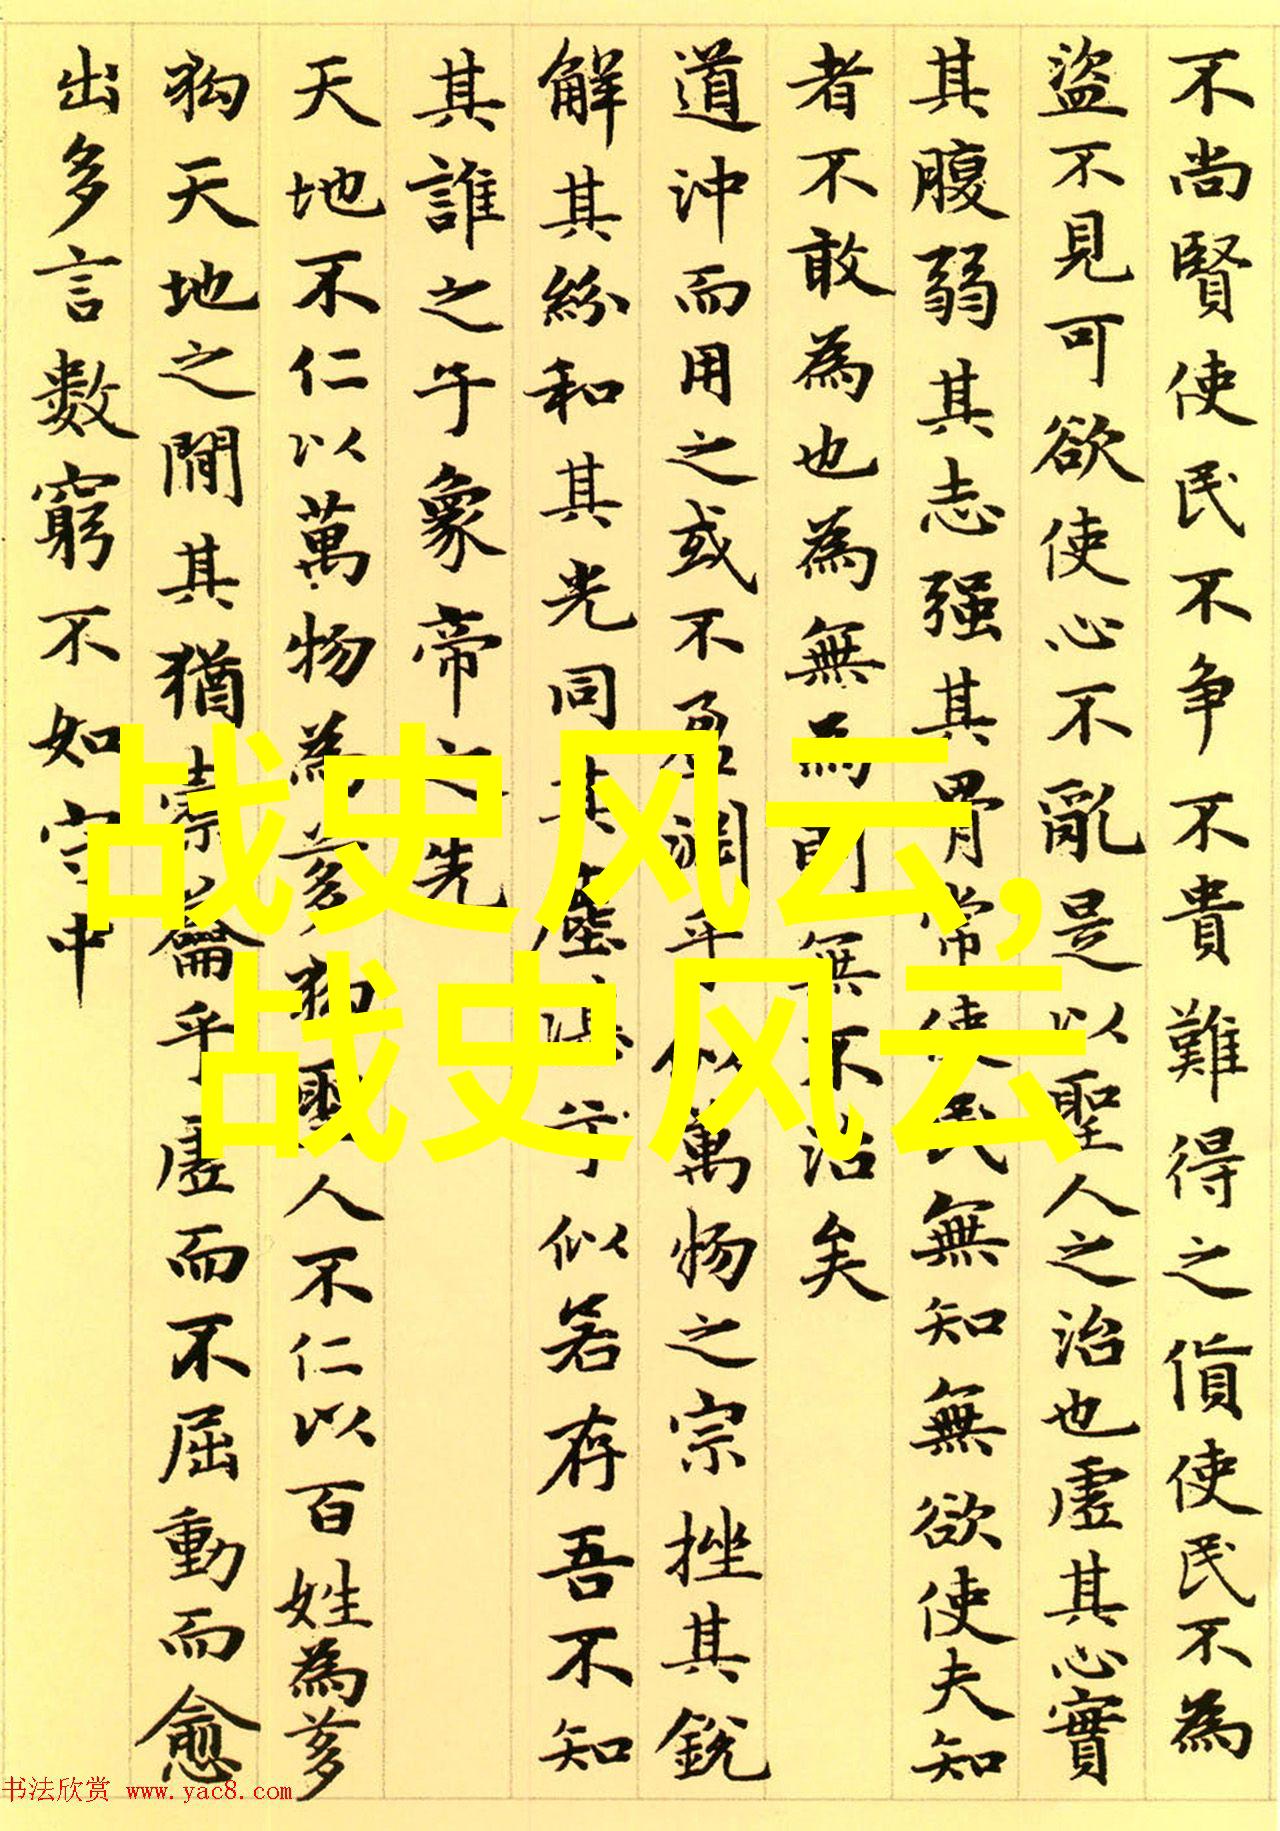 不尚賢使民不争不貴難得之貨使民不為
盜不見可欲使心不亂是以聖人之治也虛其心實
其腹弱其志强其骨常使民無知無欲使夫知
者不敢為也為無為則無不治矣
道沖而用之或不盈淵乎似萬物之宗挫其銳
解其紛和其光同其塵湛兮似若存吾不知
其誰之子象帝之先
天地不仁以萬物為芻狗聖人不仁以百姓為芻
狗天地之閒其猶橐籥乎虛而不屈動而愈
出多言數窮不如守中
战史风云,
战史风云
书法欣赏 www.yac8.com